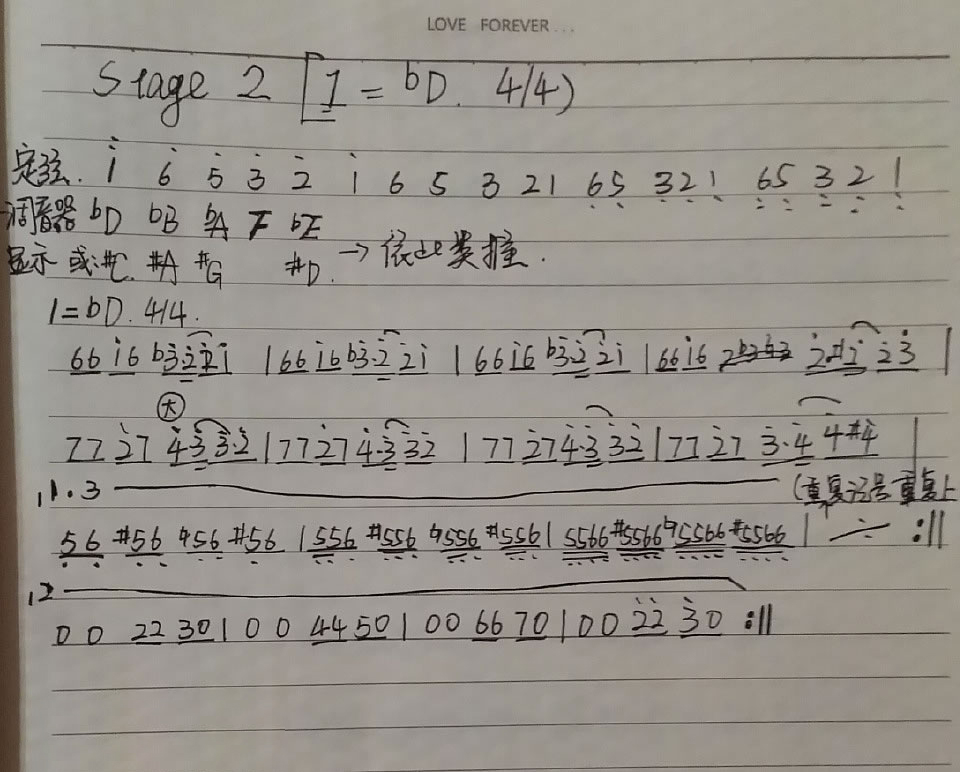 LOVE FOREVER...
Stage 2 [1 = bD. 4/4)
定弦. i̇ 6̇ 5̇ 3̇ 2̇ 1̇ 6 5 3 2 1 6̣ 5̣ 3̣ 2̣ 1̣ 6̤ 5̤ 3̤ 2̤ 1̤
调音器 bD bB bA F bE
显示 或:#C. #A #G #D. → 依此类推.
1=bD. 4/4.
66 1̇6 b3̇·2̇ 2̇1̇ | 66 1̇6 b3̇·2̇ 2̇1̇ | 66 1̇6 b3̇·2̇ 2̇1̇ | 66 1̇6 2̇·#1̇ 2̇3̇ |
大
77 2̇7 4̇·3̇ 3̇·2̇ | 77 2̇7 4̇·3̇ 3̇2̇ | 77 2̇7 4̇·3̇ 3̇2̇ | 77 2̇7 3̇·4̇ 4̇#4̇ |
1.3 (重复记号重复上
5̣6̣ #5̣6̣ ♮5̣6̣ #5̣6̣ | 5̣5̣6̣ #5̣5̣6̣ ♮5̣5̣6̣ #5̣5̣6̣ | 5̣5̣6̣6̣ #5̣5̣6̣6̣ ♮5̣5̣6̣6̣ #5̣5̣6̣6̣ | ⁒ :||
2
0 0 22 30 | 0 0 44 50 | 0 0 66 70 | 0 0 2̇2̇ 3̇0 :||